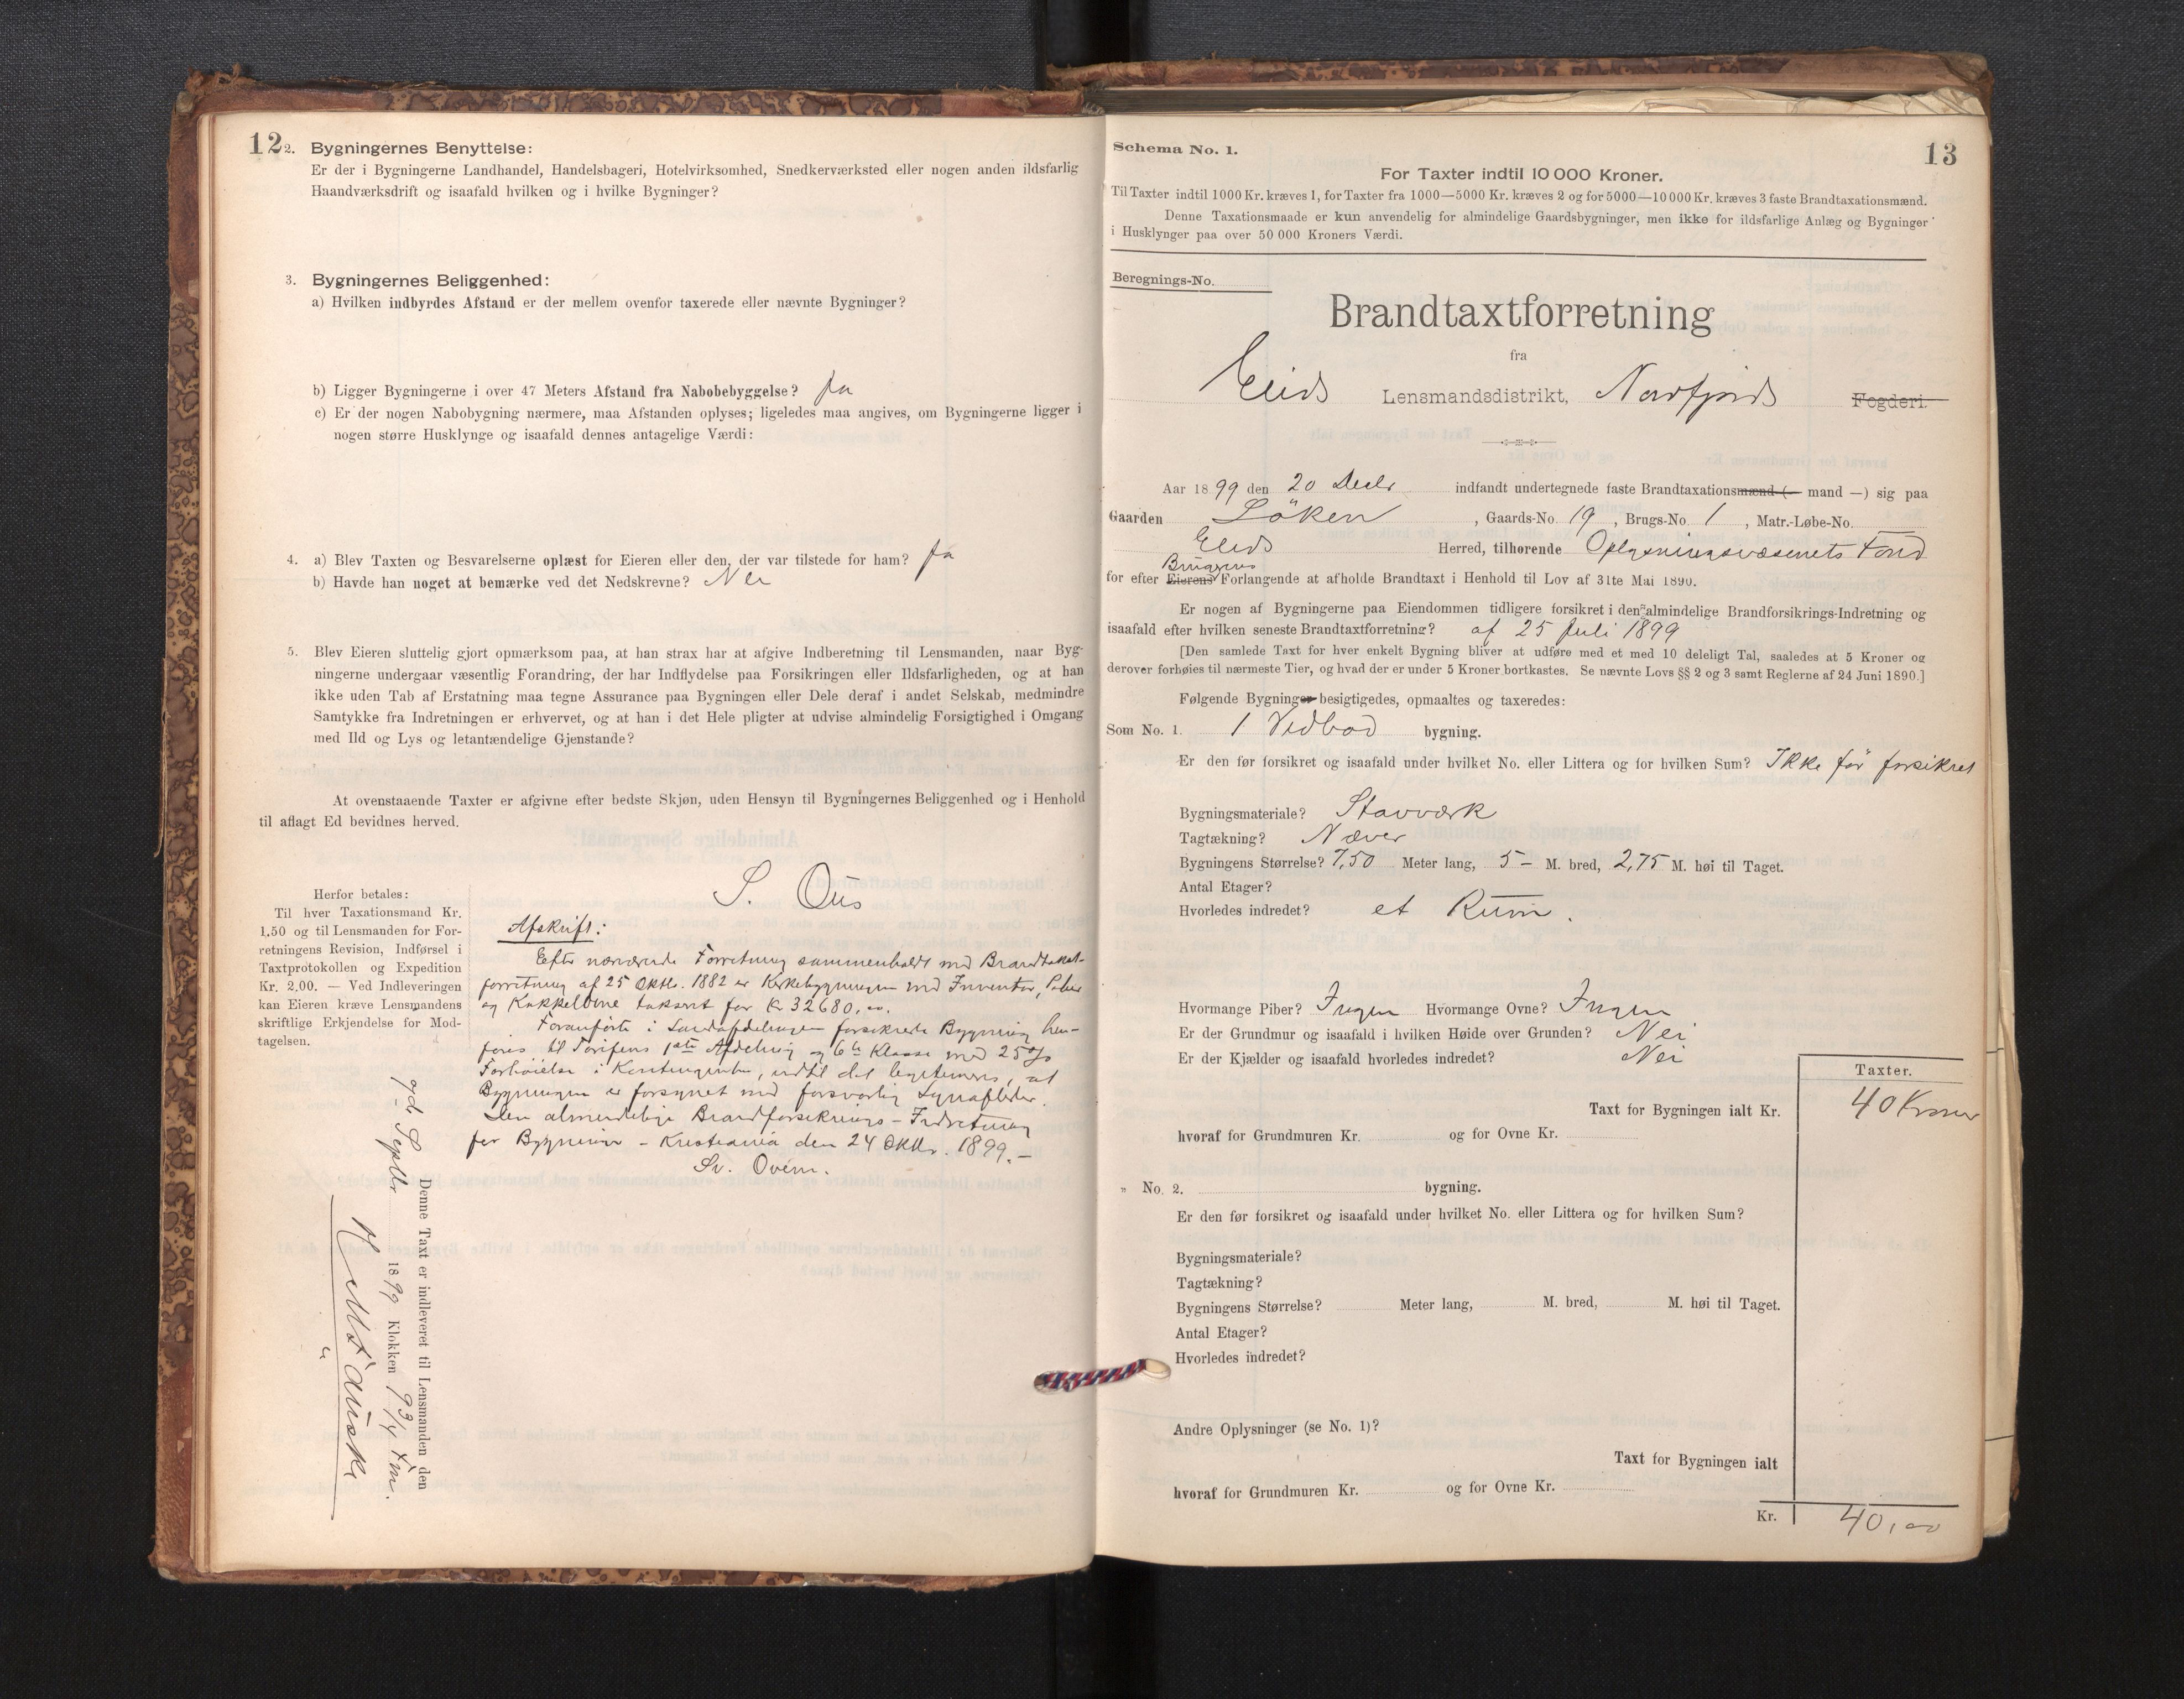 12
2. Bygningernes Benyttelse:
Er der i Bygningerne Landhandel, Handelsbageri, Hotelvirksomhed, Snedkerværksted eller nogen anden ildsfarlig
Haandværksdrift og isaafald hvilken og i hvilke Bygninger?
3. Bygningernes Beliggenhed:
a) Hvilken indbyrdes Afstand er der mellem ovenfor taxerede eller nævnte Bygninger?
b) Ligger Bygningerne i over 47 Meters Afstand fra Nabobebyggelse? Ja
c) Er der nogen Nabobygning nærmere, maa Afstanden oplyses; ligeledes maa angives, om Bygningerne ligger i
nogen større Husklynge og isaafald dennes antagelige Værdi:
4. a) Blev Taxten og Besvarelserne oplæst for Eieren eller den, der var tilstede for ham? Ja
b) Havde han noget at bemærke ved det Nedskrevne? Nei
5. Blev Eieren sluttelig gjort opmærksom paa, at han strax har at afgive Indberetning til Lensmanden, naar Byg-
ningerne undergaar væsentlig Forandring, der har Indflydelse paa Forsikringen eller Ildsfarligheden, og at han
ikke uden Tab af Erstatning maa tegne Assurance paa Bygningen eller Dele deraf i andet Selskab, medmindre
Samtykke fra Indretningen er erhvervet, og at han i det Hele pligter at udvise almindelig Forsigtighed i Omgang
med Ild og Lys og letantændelige Gjenstande?
At ovenstaaende Taxter er afgivne efter bedste Skjøn, uden Hensyn til Bygningernes Beliggenhed og i Henhold
til aflagt Ed bevidnes herved.
S. Ous
Herfor betales:
Til hver Taxationsmand Kr.
1,50 og til Lensmanden for For-
retningens Revision, Indførsel i
Taxtprotokollen og Expedition
Kr. 2.00. — Ved Indleveringen
kan Eieren kræve Lensmandens
skriftlige Erkjendelse for Mod-
tagelsen.
Afskrift:
Efter nærværende Forretning sammenholdt med Brandtakst-
forretning af 25 Oktbr. 1882 er Kirkebygningen med Inventar, Piber
og Kakkelovne takseret for Kr 32680,00.
Foranførte i Landafdelingen forsikrede Bygning hen-
føres til Tarifens 1ste Afdeling og 6te Klasse med 25 %
Forhøielse i Kontingenten, indtil det legitimeres, at
Bygningen er forsynet med forsvarlig Lynafleder.
Den almindelige Brandforsikrings-Indretning
for Bygninger - Kristiania den 24 Oktbr. 1899.-
Denne Taxt er indleveret til Lensmanden den
9de Septbr 1899 Klokken 9 3/4 Fm.
Schema No. 1.
13
For Taxter indtil 10 000 Kroner.
Til Taxter indtil 1000 Kr. kræves 1, for Taxter fra 1000—5000 Kr. kræves 2 og for 5000—10 000 Kr. kræves 3 faste Brandtaxationsmænd.
Denne Taxationsmaade er kun anvendelig for almindelige Gaardsbygninger, men ikke for ildsfarlige Anlæg og Bygninger
i Husklynger paa over 50 000 Kroners Værdi.
Beregnings-No.
Brandtaxtforretning
fra
Eids Lensmandsdistrikt, Nordfjords Fogderi.
Aar 1899 den 20 Decbr indfandt undertegnede faste Brandtaxationsmænd (— mand —) sig paa
Gaarden Löken, Gaards-No. 19, Brugs-No. 1, Matr.-Løbe-No.
Eids Herred, tilhørende Oplysningsvæsenets Fond
Brugerens
for efter Eierens Forlangende at afholde Brandtaxt i Henhold til Lov af 31te Mai 1890.
Er nogen af Bygningerne paa Eiendommen tidligere forsikret i den almindelige Brandforsikrings-Indretning og
isaafald efter hvilken seneste Brandtaxtforretning? af 25 Juli 1899
[Den samlede Taxt for hver enkelt Bygning bliver at udføre med et med 10 deleligt Tal, saaledes at 5 Kroner og
derover forhøies til nærmeste Tier, og hvad der er under 5 Kroner bortkastes. Se nævnte Lovs §§ 2 og 3 samt Reglerne af 24 Juni 1890.]
Følgende Bygninger besigtigedes, opmaaltes og taxeredes:
Som No. 1. 1 Vedbod bygning.
Er den før forsikret og isaafald under hvilket No. eller Littera og for hvilken Sum? Ikke før forsikret
Bygningsmateriale? Stavværk
Tagtækning? Næver
Bygningens Størrelse? 7,50 Meter lang, 5- M. bred, 2,75 M. høi til Taget.
Antal Etager?
Hvorledes indredet? et Rum.
Hvormange Piber? Ingen Hvormange Ovne? Ingen
Er der Grundmur og isaafald i hvilken Høide over Grunden? Nei
Er der Kjælder og isaafald hvorledes indredet? Nei
Taxter.
Taxt for Bygningen ialt Kr. 40 Kroner
hvoraf for Grundmuren Kr. og for Ovne Kr.
„ No. 2. bygning.
Er den før forsikret og isaafald under hvilket No. eller Littera og for hvilken Sum?
Bygningsmateriale?
Tagtækning?
Bygningens Størrelse? Meter lang, M. bred, M. høi til Taget.
Antal Etager?
Hvorledes indredet?
Andre Oplysninger (se No. 1)?
Taxt for Bygningen ialt
hvoraf for Grundmuren Kr. og for Ovne Kr.
Kr. 40,00